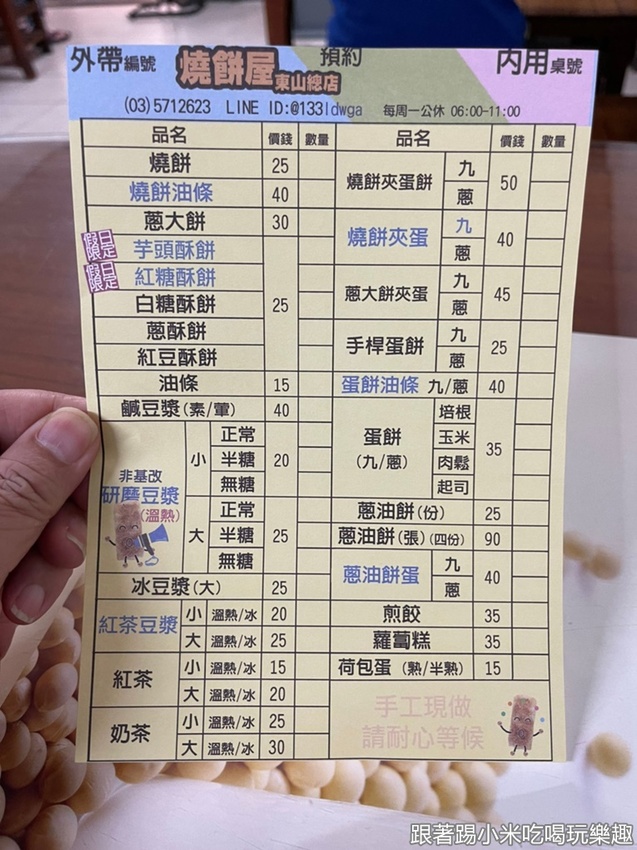 外帶編號 燒餅屋 東山總店 預約 內用桌號
(03)5712623 LINE ID:@133ldwga 每周一公休 06:00-11:00
品名 價錢 數量
燒餅 25
燒餅油條 40
蔥大餅 30
假日限定 芋頭酥餅
假日限定 紅糖酥餅
白糖酥餅 25
蔥酥餅
紅豆酥餅
油條 15
鹹豆漿(素/葷) 40
非基改
研磨豆漿
(溫熱)
小 正常 半糖 無糖 20
大 正常 半糖 無糖 25
冰豆漿(大) 25
紅茶豆漿 小 溫熱/冰 20
大 溫熱/冰 25
紅茶 小 溫熱/冰 15
大 溫熱/冰 20
奶茶 小 溫熱/冰 25
大 溫熱/冰 30
品名 價錢 數量
燒餅夾蛋餅 九 蔥 50
燒餅夾蛋 九 蔥 40
蔥大餅夾蛋 九 蔥 45
手桿蛋餅 九 蔥 25
蛋餅油條 九/蔥 40
蛋餅
(九/蔥)
培根 玉米 肉鬆 起司 35
蔥油餅(份) 25
蔥油餅(張)(四份) 90
蔥油餅蛋 九 蔥 40
煎餃 35
蘿蔔糕 35
荷包蛋 (熟/半熟) 15
手工現做
請耐心等候
跟著踢小米吃喝玩樂趣